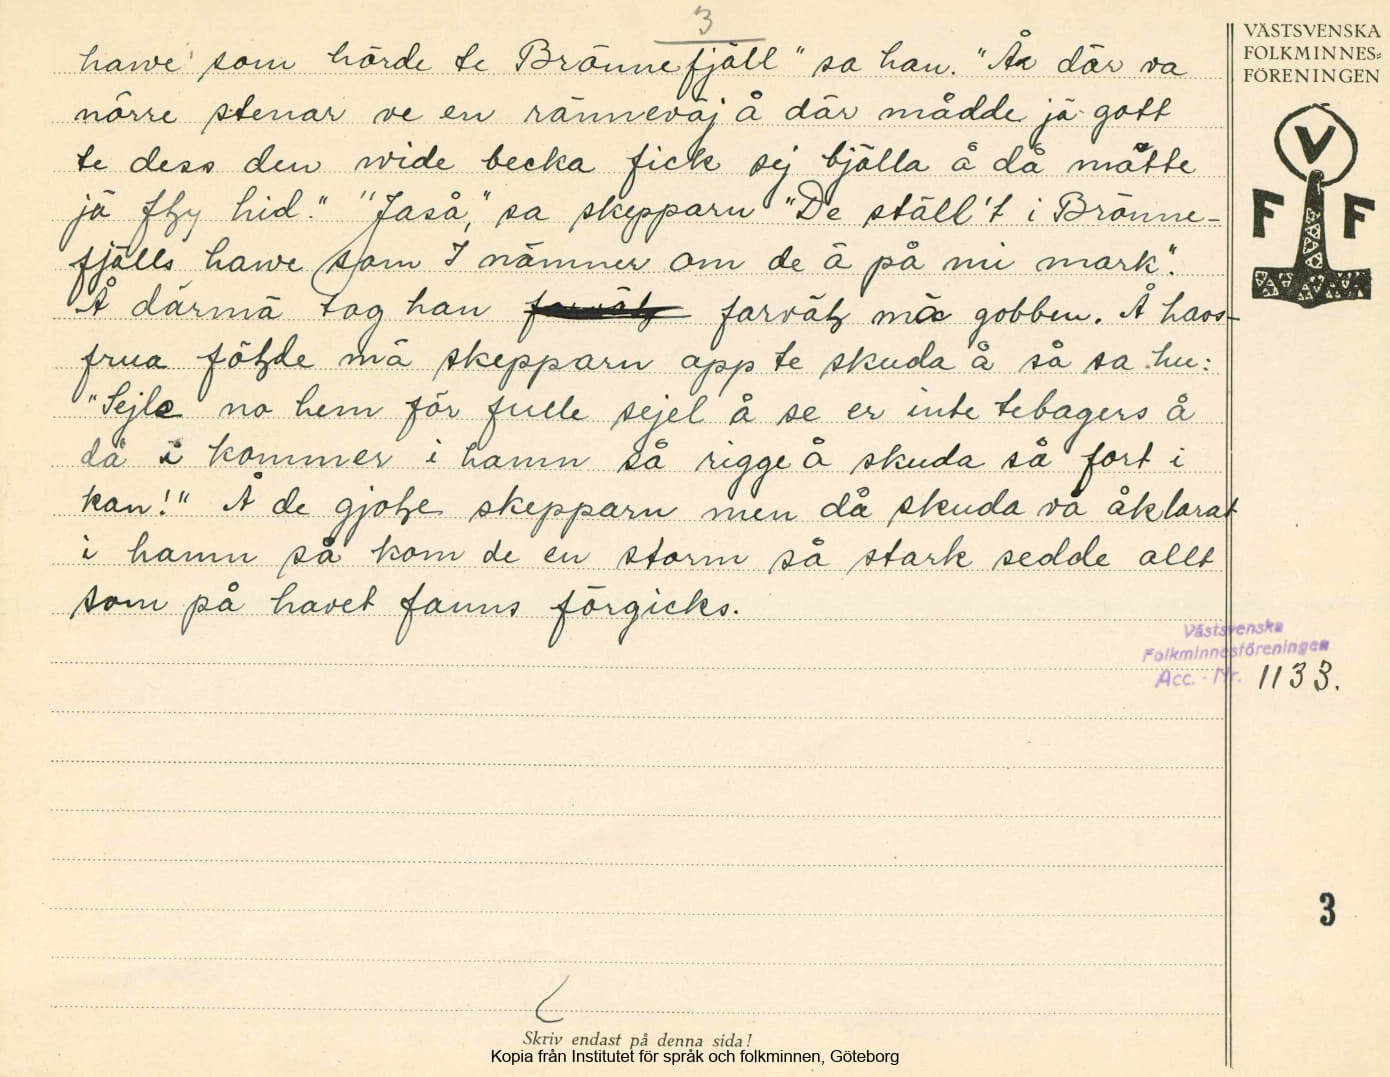 3
hawe som hörde te Brönnefjäll" sa han. "Å där va
nörre stenar ve en ränneväj å där mådde jä gott
te dess den wide becka fick sej bjälla å då måtte
jä flɥ hid." "Jaså," sa skepparn "De ställ't i Brönne-
fjälls hawe som I nämner om de ä på mi mark".
Å därmä tog han farväl mä gobben. Å haos-
frua földe mä skepparn opp te skuda å så sa hu:
"Sejle no hem för fulle sejel å se er inte tebagers å
då i kommer i hamn så rigge å skuda så fort i
kan!" Å de gjole skepparn men då skuda va åklarat
i hamn så kom de en storm så stark sedde allt
som på havet fanns förgicks.
VÄSTSVENSKA
FOLKMINNES-
FÖRENINGEN
V
F F
Västsvenska
Folkminnesföreningen
Acc. - Nr. 1133.
3
Skriv endast på denna sida!
Kopia från Institutet för språk och folkminnen, Göteborg